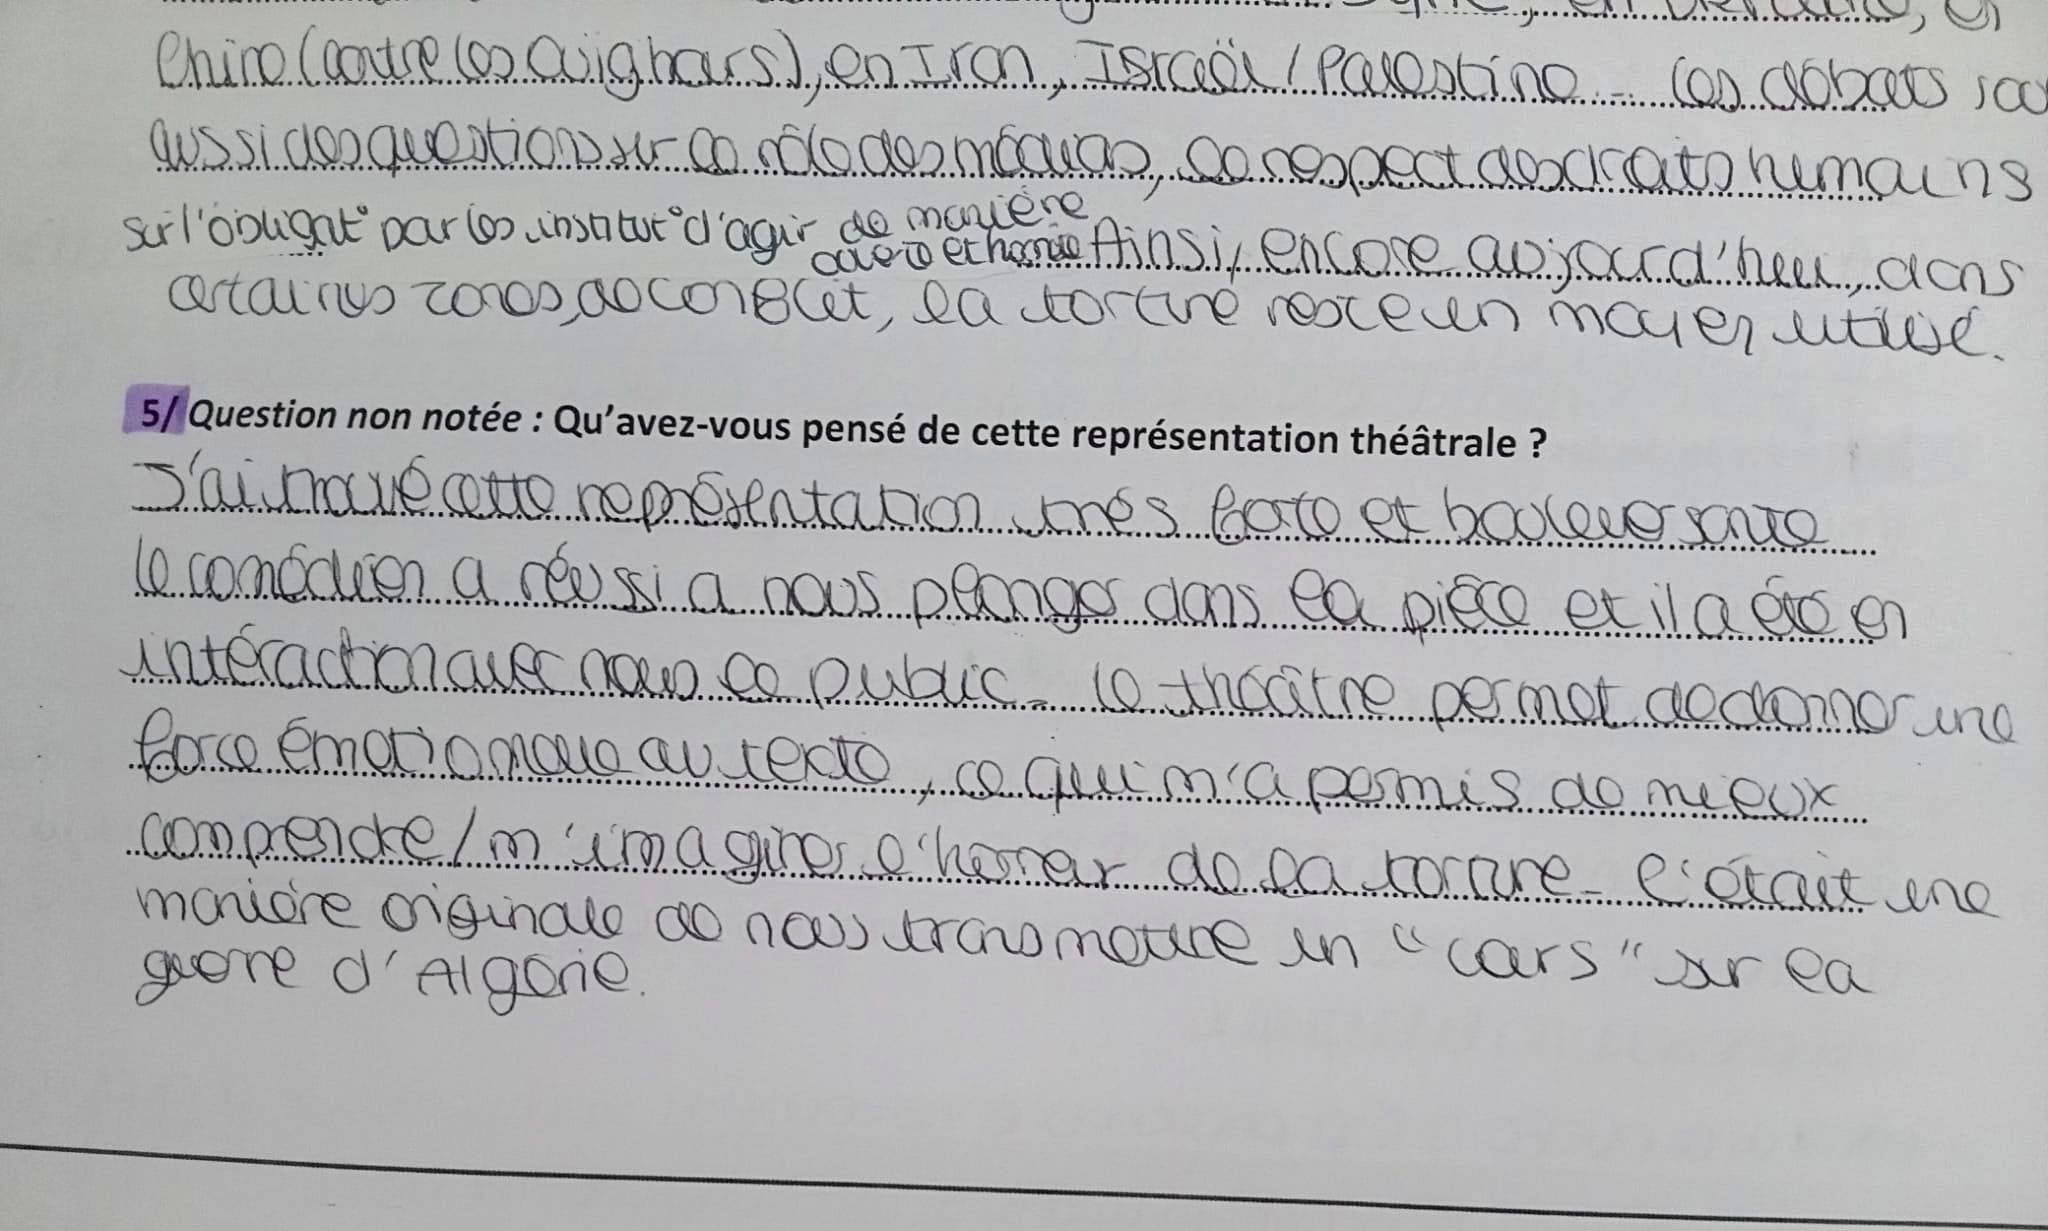 Chine (contre les Ouïghours), en Iran, Israël / Palestine... Les débats sont
aussi des questions sur le rôle des médias, le respect des droits humains
sur l'obligat° par les institut° d'agir de manière
Ainsi, encore aujourd'hui, dans
certaines zones de conflit, la torture reste un moyen utilisé.
5/ Question non notée : Qu'avez-vous pensé de cette représentation théâtrale ?
J'ai trouvé cette représentation très forte et bouleversante
le comédien a réussi a nous plonger dans la pièce et il a été en
intéraction avec nous le public. Le théâtre permet de donner une
force émotionnelle au texte, ce qui m'a permis de mieux
comprendre / m'imaginer l'horreur de la torture. C'était une
manière originale de nous transmettre un "cours" sur la
guerre d'Algérie.